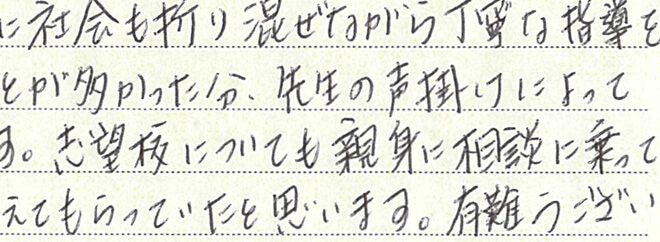 に社会も折り混ぜながら丁寧な指導を
とが多かった分、先生の声掛けによって
す。志望校についても親身に相談に乗って
えてもらっていたと思います。有難うござい